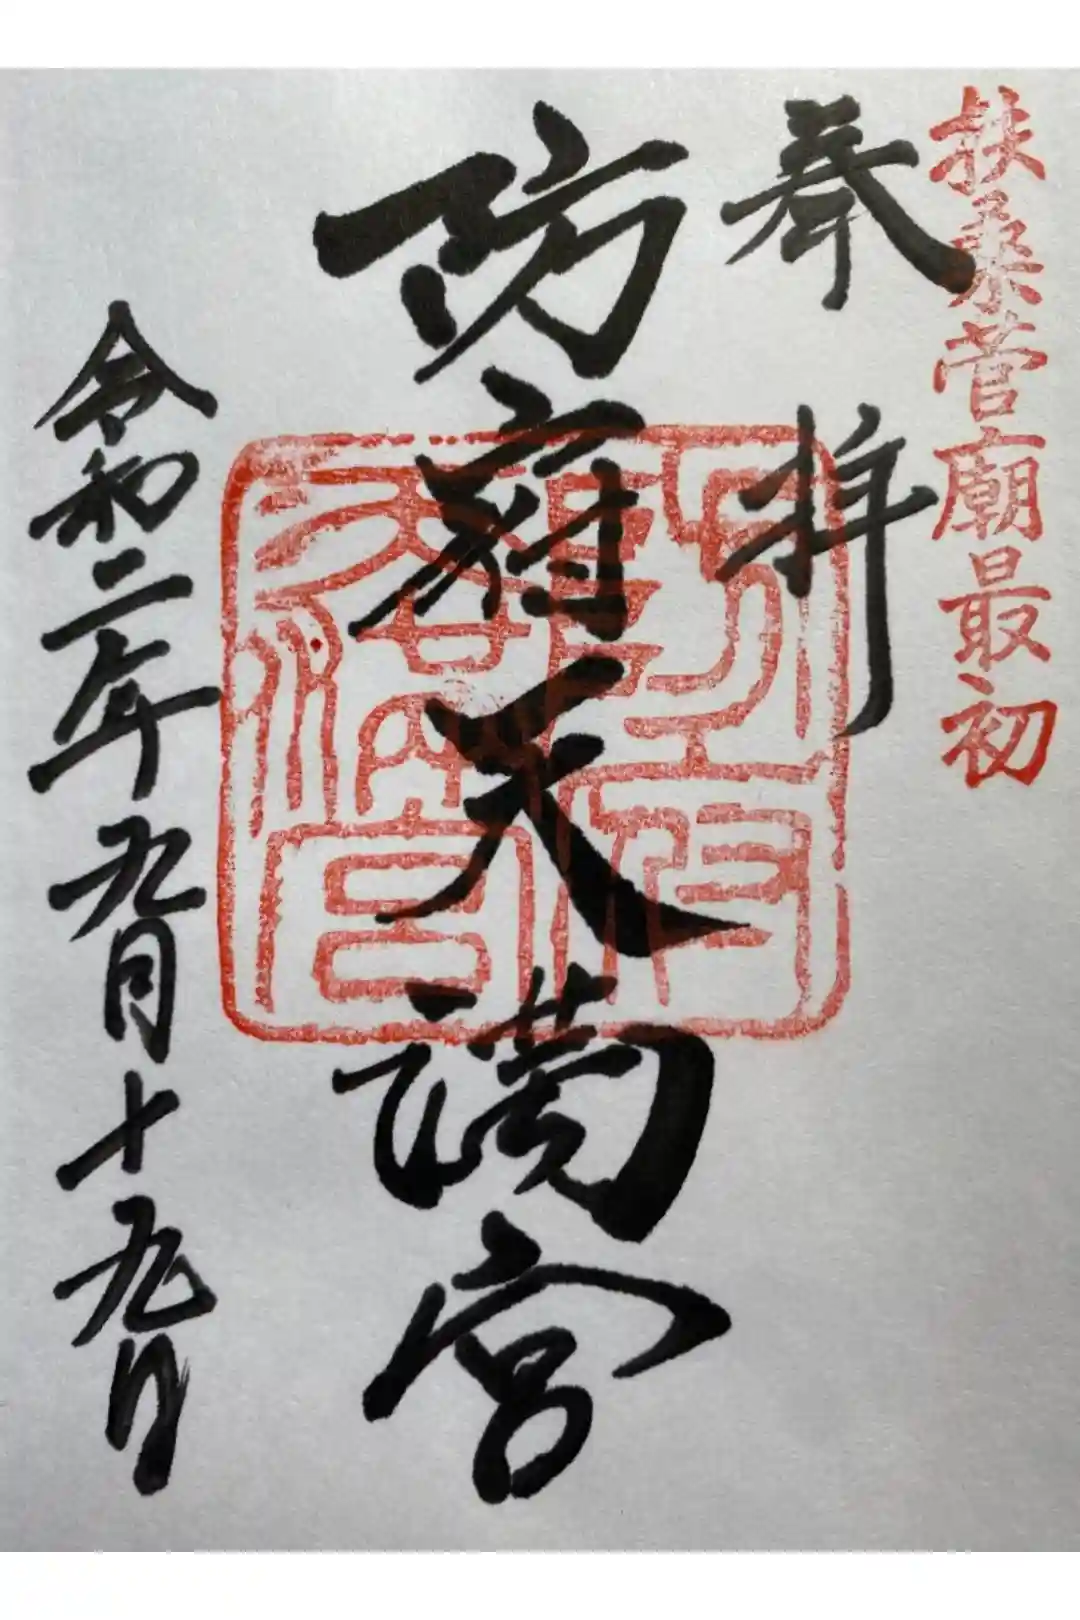 扶桑菅廟最初
奉拝
防府天満宮
令和二年九月十九日